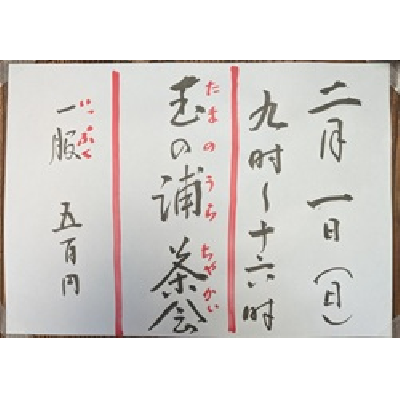 二月一日(日)
九時~十六時
たまのうらちゃかい
玉の浦茶会
いっぷく
一服 五百円